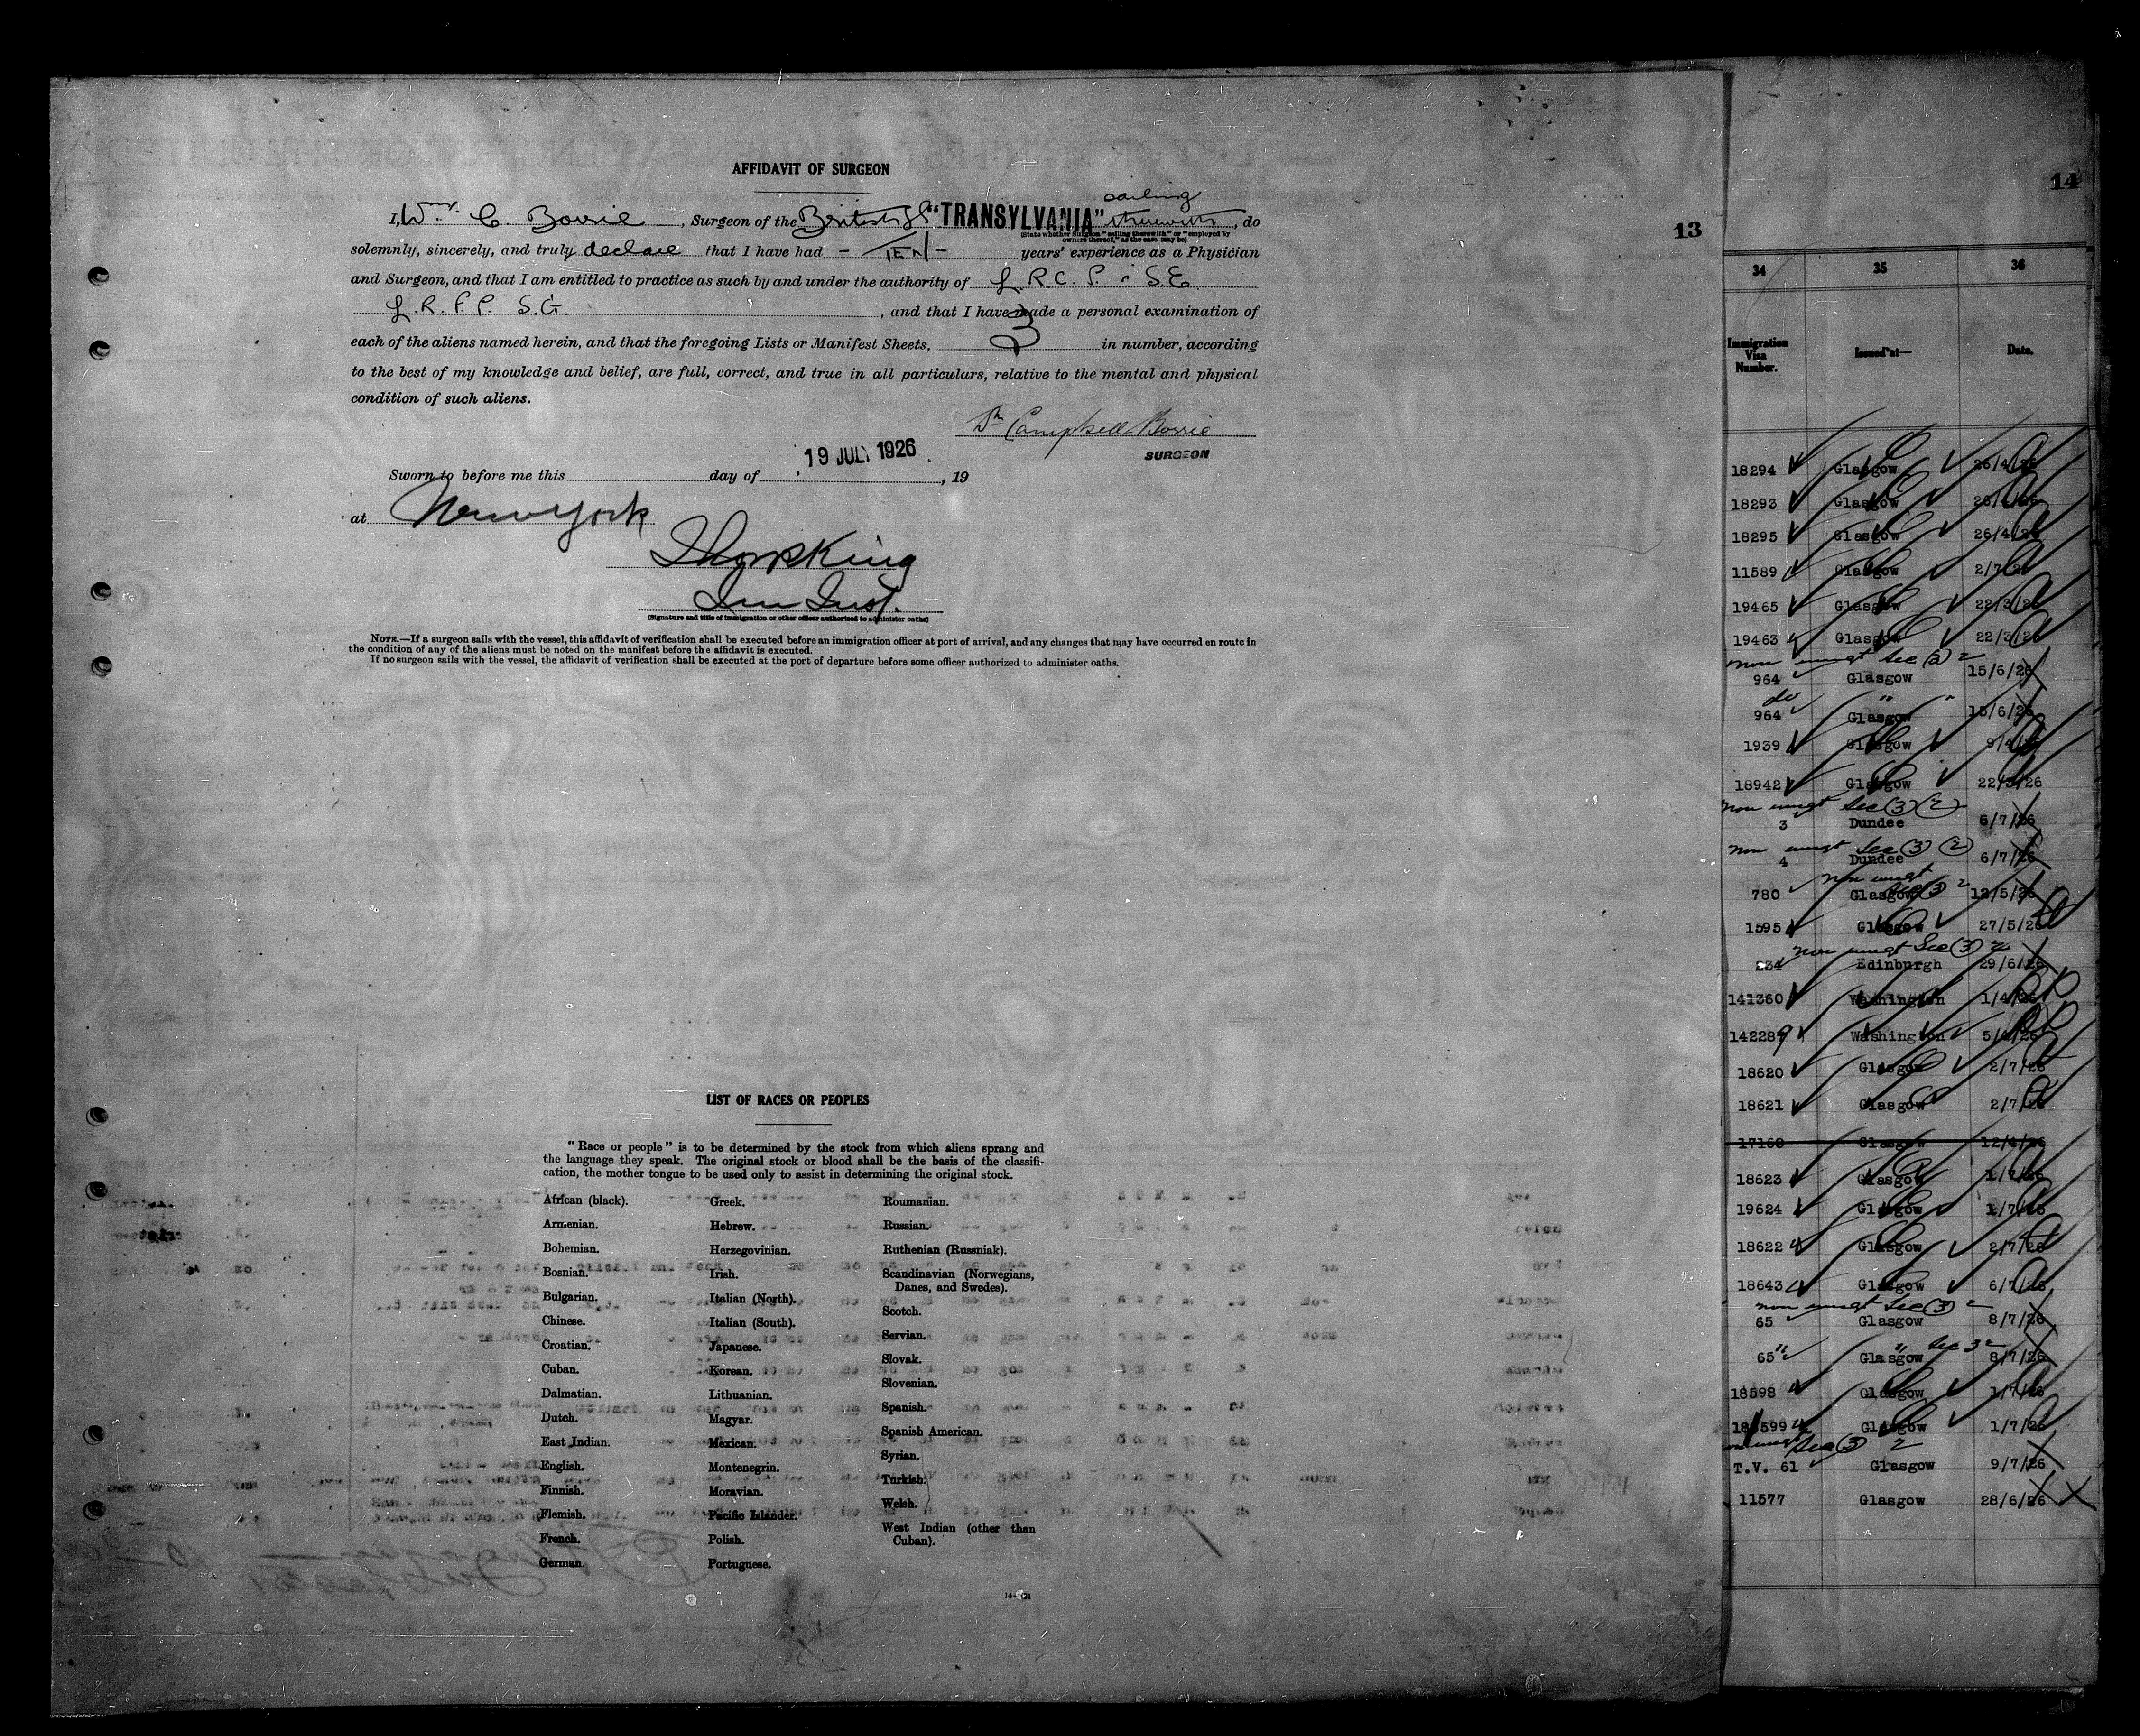 AFFIDAVIT OF SURGEON
sailing
I, Wm. C. Borrie, Surgeon of the British SS "TRANSYLVANIA" therewith, do
(State whether Surgeon "sailing therewith" or "employed by
owners thereof," as the case may be)
solemnly, sincerely, and truly declare that I have had - TEN - years' experience as a Physician
and Surgeon, and that I am entitled to practice as such by and under the authority of L.R.C.P. S.E.
L.R.F.P. S.G. , and that I have made a personal examination of
each of the aliens named herein, and that the foregoing Lists or Manifest Sheets, 3 in number, according
to the best of my knowledge and belief, are full, correct, and true in all particulars, relative to the mental and physical
condition of such aliens.
Campbell Borrie
SURGEON
19 JULY 1926
Sworn to before me this day of , 19
at New York
Imm Inst.
(Signature and title of immigration or other officer authorized to administer oaths)
NOTE.—If a surgeon sails with the vessel, this affidavit of verification shall be executed before an immigration officer at port of arrival, and any changes that may have occurred en route in
the condition of any of the aliens must be noted on the manifest before the affidavit is executed.
If no surgeon sails with the vessel, the affidavit of verification shall be executed at the port of departure before some officer authorized to administer oaths.
LIST OF RACES OR PEOPLES
"Race or people" is to be determined by the stock from which aliens sprang and
the language they speak. The original stock or blood shall be the basis of the classifi-
cation, the mother tongue to be used only to assist in determining the original stock.
African (black).
Armenian.
Bohemian.
Bosnian.
Bulgarian.
Chinese.
Croatian.
Cuban.
Dalmatian.
Dutch.
East Indian.
English.
Finnish.
Flemish.
French.
German.
Greek.
Hebrew.
Herzegovinian.
Irish.
Italian (North).
Italian (South).
Japanese.
Korean.
Lithuanian.
Magyar.
Mexican.
Montenegrin.
Moravian.
Pacific Islander.
Polish.
Portuguese.
Roumanian.
Russian.
Ruthenian (Russniak).
Scandinavian (Norwegians,
Danes, and Swedes).
Scotch.
Servian.
Slovak.
Slovenian.
Spanish.
Spanish American.
Syrian.
Turkish.
Welsh.
West Indian (other than
Cuban).
13
14
34 35 36
Immigration
Visa
Number.
Issued at—
Date.
18294 Glasgow 26/4/26
18293 Glasgow 26/4/26
18295 Glasgow 26/4/26
11589 Glasgow 2/7/26
19465 Glasgow 22/3/26
19463 Glasgow 22/3/26
non immgt Sec (3) 2
964 Glasgow 15/6/26
do " "
964 Glasgow 15/6/26
1939 Glasgow 9/4/26
18942 Glasgow 22/3/26
non immgt Sec (3) (2)
3 Dundee 6/7/26
non immgt Sec (3) (2)
4 Dundee 6/7/26
non immgt
Sec (3) 2
780 Glasgow 12/5/26
1595 Glasgow 27/5/26
non immgt Sec (3) 2
234 Edinburgh 29/6/26
141360 Washington 1/4/26
142287 Washington 5/4/26
18620 Glasgow 2/7/26
18621 Glasgow 2/7/26
17160 Glasgow 12/4/26
18623 Glasgow 1/7/26
19624 Glasgow 1/7/26
18622 Glasgow 2/7/26
18643 Glasgow 6/7/26
non immgt Sec (3) 2
65 Glasgow 8/7/26
" " Sec 3 2
65 Glasgow 8/7/26
18598 Glasgow 1/7/26
18599 Glasgow 1/7/26
non immgt Sec (3) 2
T.V. 61 Glasgow 9/7/26
11577 Glasgow 28/6/26